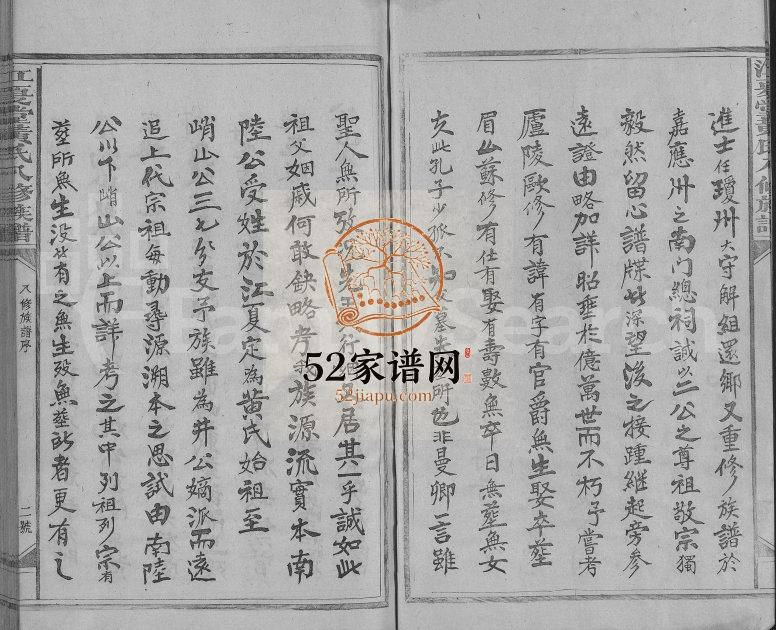 進士任瓊州大守解組還鄉又重修族譜於
嘉應州之南门總祠誠以二公之尊祖敬宗獨
毅然留心譜牒此深望後之接踵継起旁參
遠證由略加詳昭垂於億萬世而不朽予嘗考
廬陵歐修有諱有字有官爵無生娶卒塟
眉山蘇修有仕有娶有壽數無卒日無塟無女
夫此孔子少孤不知 墓 所也非曼卿一言雖
聖人無所攷 先 行 居其一乎誠如此
祖父姻戚何敢缺略考 族源流實本南
陸公受姓於江夏定為黄氏始祖至
峭山公三七分支予族雖為井公嫡派而遠
追上代宗祖每動尋源溯本之思試由南陸
公以下峭山公以上而詳考之其中列祖列宗有
塟所無生没此有之無生殁無塟所者更有之
江夏堂黄氏八修族譜
八修族譜序
二號
江夏堂黄氏八修族譜
52家谱网
52jiapu.com